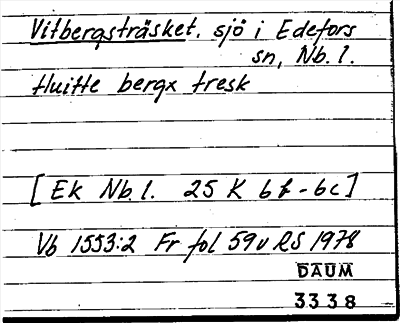 Vitbergsträsket. sjö i Edefors
sn, Nb. l.
Huitte bergx tresk
[Ek Nb. l. 25 K 6 f - 6 c]
Vb 1553:2 Fr fol 59v RS 1978
DAUM
3338